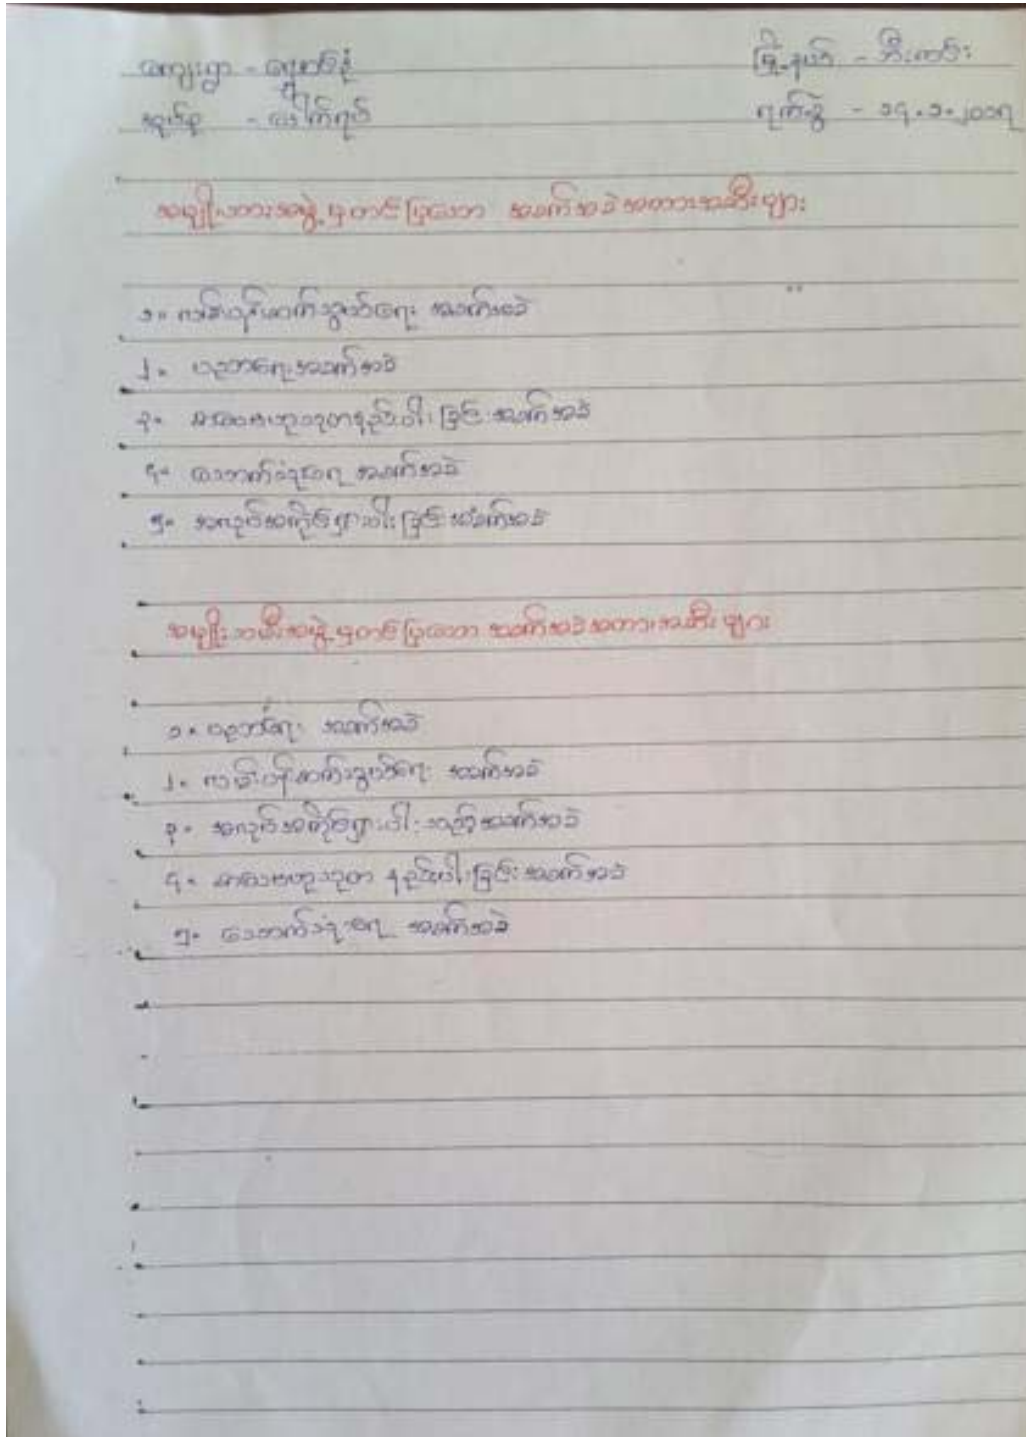 ကျေးရွာ - မြို့နယ် - ဘီးလင်း
အုပ်စု - ရက်စွဲ - ၁၄.၁.၂၀၁၇
အမျိုးသားအဖွဲ့မှတင်ပြသော အခက်အခဲအတားအဆီးများ
၁။ လမ်းပန်းဆက်သွယ်ရေး အခက်အခဲ
၂။ ပညာရေးအခက်အခဲ
၃။ ဗဟုသုတနည်းပါးခြင်းအခက်အခဲ
၄။ သောက်သုံးရေ အခက်အခဲ
၅။ အလုပ်အကိုင်ရှားပါးခြင်းအခက်အခဲ
အမျိုးသမီးအဖွဲ့မှတင်ပြသော အခက်အခဲအတားအဆီးများ
၁။ ပညာရေး အခက်အခဲ
၂။ လမ်းပန်းဆက်သွယ်ရေး အခက်အခဲ
၃။ အလုပ်အကိုင်ရှားပါးသည့်အခက်အခဲ
၄။ ဗဟုသုတ နည်းပါးခြင်းအခက်အခဲ
၅။ သောက်သုံးရေ အခက်အခဲ